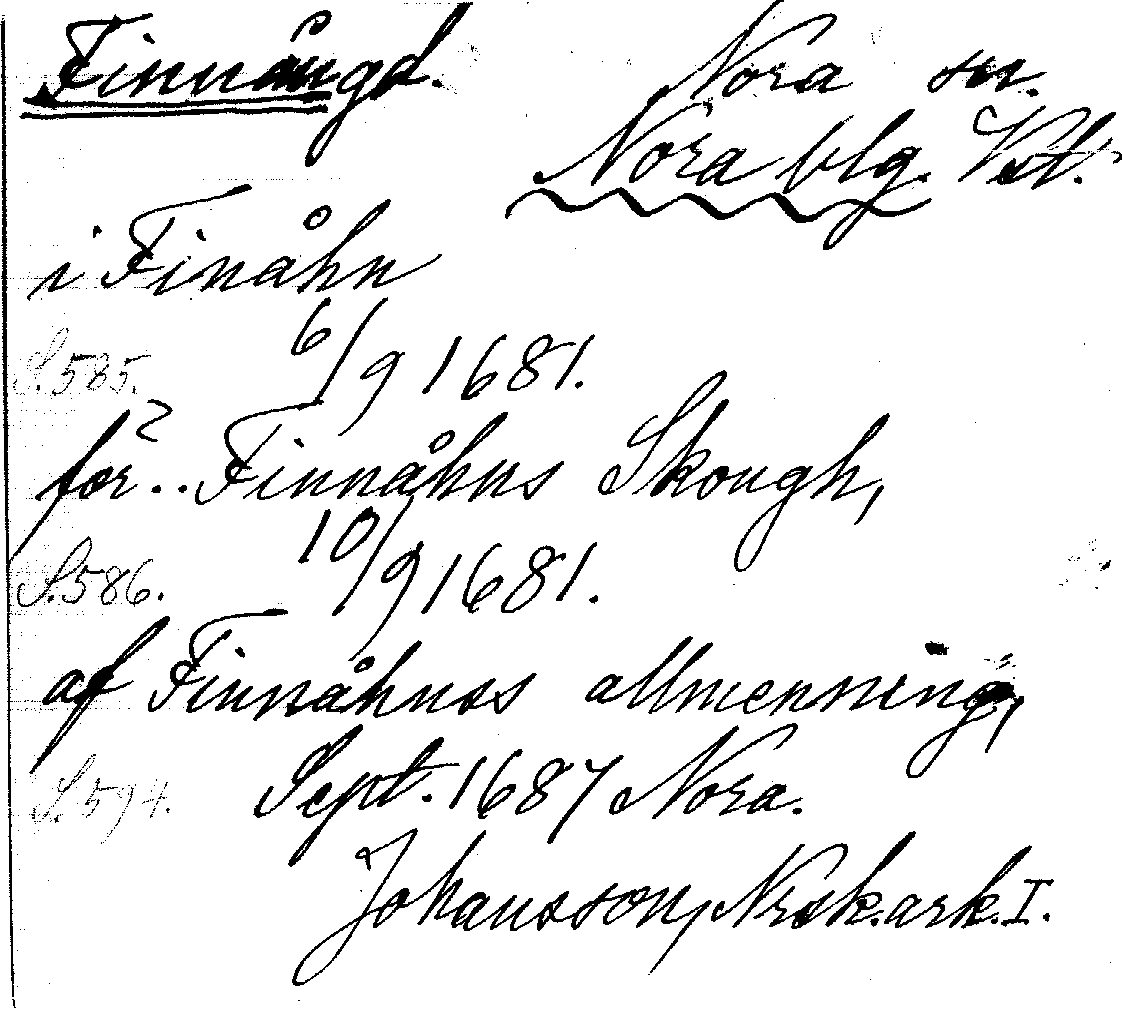 Finnångd. Nora sn.
Nora blg. Vstl.
i Finåhn
S. 585. 6/9 1681.
för .. Finnåhns Skough,
S. 586. 10/9 1681.
af Finnåhnss allmenning,
S. 594. Sept. 1687 Nora.
Johansson, Nrsk. ark. I.